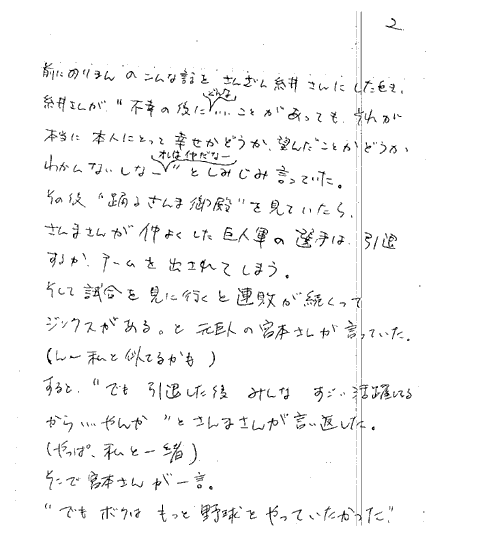 2
前にのりまん のこんな話を さんざん糸井さんにした時、
糸井さんが、"不幸の後にどんないいことがあっても、それが
本当に 本人にとって 幸せかどうか、望んだことかどうか
わかんないしなー" としみじみ言っていた。
その後 "踊るさんま御殿" を見ていたら、
さんまさんが 仲よくした 巨人軍の選手は、引退
するか、チームを出されてしまう。
そして 試合を見に行くと 連敗が続くって
ジンクスがある。と 元巨人の宮本さんが言っていた。
(んー 私と似てるかも)
すると、"でも 引退した後 みんな すごい活躍してる
から いいやんか" とさんまさんが言い返した。
(やっぱ、私と一緒)
そこで宮本さんが一言。
"でもボクは もっと野球をやっていたかった"